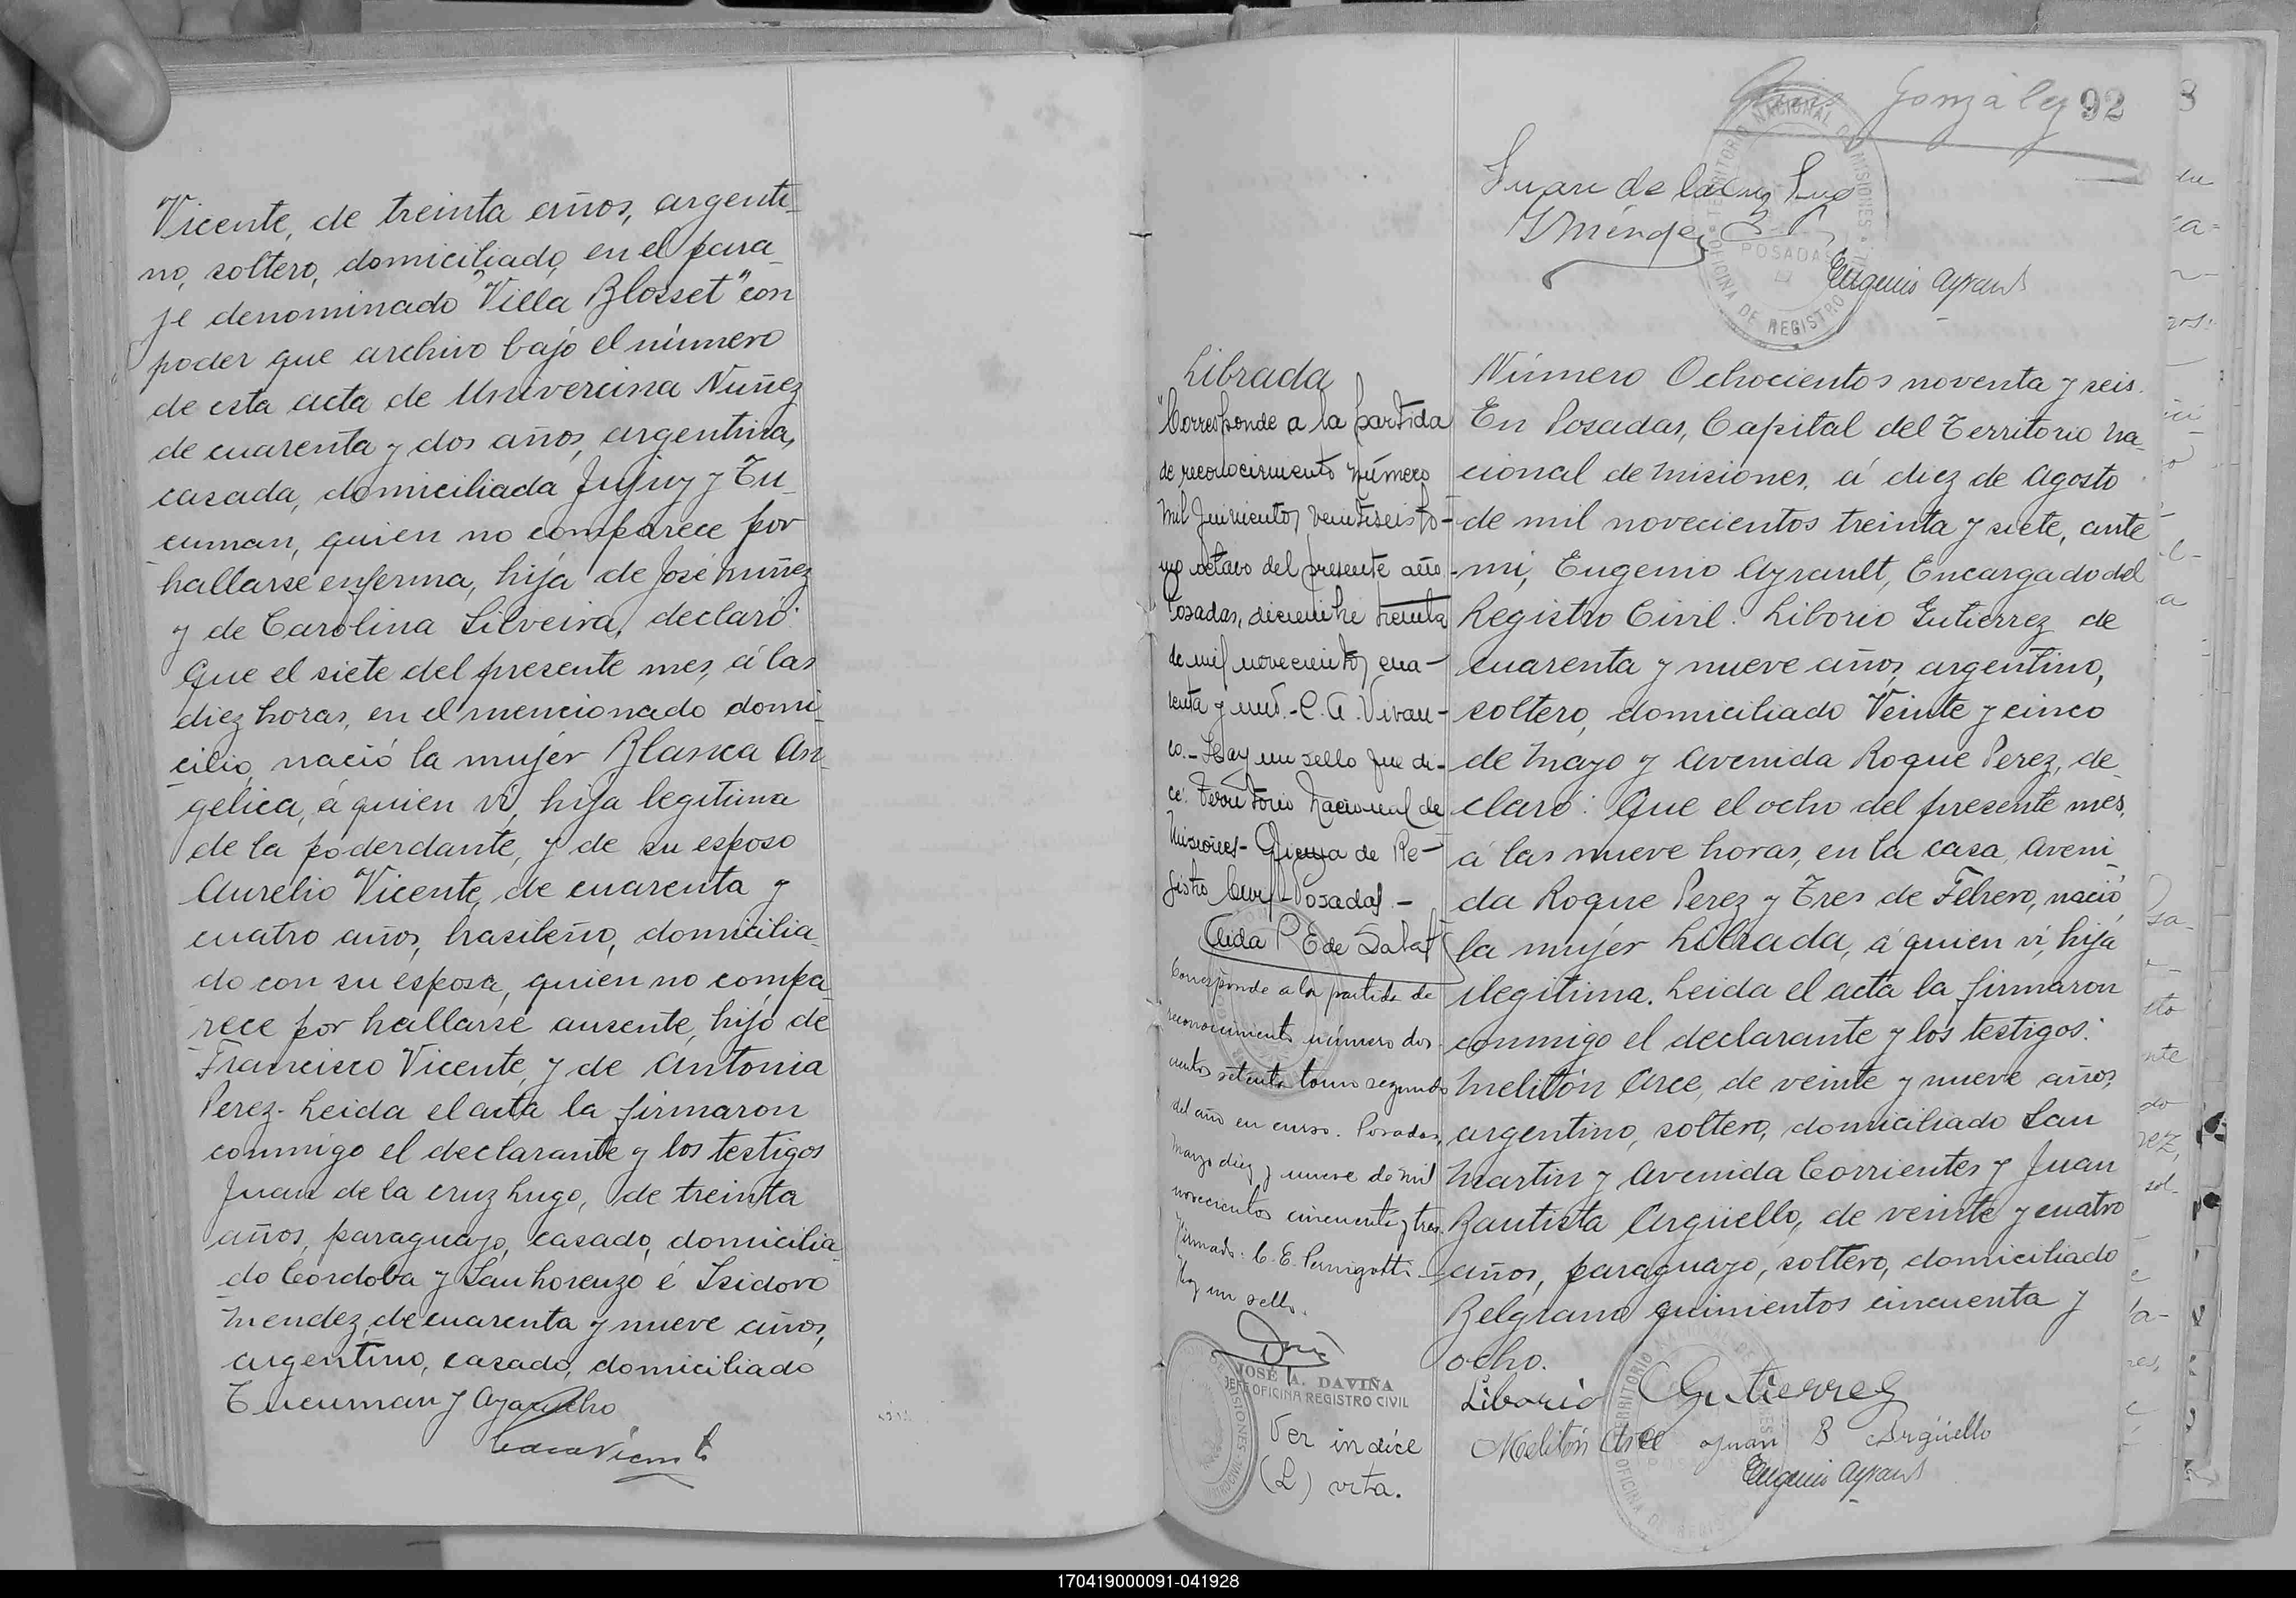 Vicente, de treinta años, argenti-
no, soltero, domiciliado, en el para-
je denominado "Villa Blosset" con
poder que archivo bajo el número
de esta acta de Univercina Nuñez
de cuarenta y dos años, argentina,
casada, domiciliada Jujuy y Tu-
cuman, quien no comparece por
hallarse enferma, hija de José Nuñez
y de Carolina Silveira, declaró:
Que el siete del presente mes, á las
diez horas, en el mencionado domi-
cilio, nació la mujer Blanca An-
gelica, á quien ví, hija legitima
de la poderdante, y de su esposo
Aurelio Vicente, de cuarenta y
cuatro años, brasileño, domicilia-
do con su esposa, quien no compa-
rece por hallarse ausente, hijo de
Francisco Vicente, y de Antonia
Perez. Leida el acta la firmaron
conmigo el declarante y los testigos
Juan de la cruz Lugo, de treinta
años, paraguayo, casado, domicilia-
do Córdoba y San Lorenzo é Isidoro
Mendez, de cuarenta y nueve años,
argentino, casado, domiciliado
Tucuman y Ayacucho
Gonzalez 92
Juan de la Cruz Lugo
I Méndez
Eugenio Ayrault
TERRITORIO NACIONAL DE MISIONES
OFICINA DE REGISTRO
POSADAS
Librada
"Corresponde a la partida
de reconocimiento número
mil quinientos veintiseis to-
mo octavo del presente año.-
Posadas, diciembre treinta
de mil novecientos cua-
renta y uno.- C. A. Vivan-
co.- Hay un sello que di-
ce: Territorio Nacional de
Misiones- Oficina de Re-
gistro Civil- Posadas.-
Corresponde a la partida de
reconocimiento número dos-
cientos setenta tomo segundo
del año en curso. Posadas,
Marzo diez y nueve de mil
novecientos cincuenta y tres.
Firmado: C. E. Pernigotti-
Hay un sello.
JOSÉ A. DAVIÑA
JEFE OFICINA REGISTRO CIVIL
Ver indice
(L) vta.
Número Ochocientos noventa y seis.
En Posadas, Capital del Territorio na-
cional de Misiones, á diez de Agosto
de mil novecientos treinta y siete, ante
mí, Eugenio Ayrault, Encargado del
Registro Civil. Liborio Gutierrez de
cuarenta y nueve años, argentino,
soltero, domiciliado Veinte y cinco
de Mayo y Avenida Roque Perez, de-
claró: Que el ocho del presente mes,
á las nueve horas, en la casa, Aveni-
da Roque Perez y Tres de Febrero, nació
la mujer Librada, á quien ví, hija
ilegitima. Leida el acta la firmaron
conmigo el declarante y los testigos:
Melitón Arce, de veinte y nueve años,
argentino, soltero, domiciliado San
Martin y Avenida Corrientes y Juan
Bautista Argüello, de veinte y cuatro
años, paraguayo, soltero, domiciliado
Belgrano quinientos cincuenta y
ocho.
Liborio Gutierrez
Melitón Arce Juan B Argüello
Eugenio Ayrault
170419000091-041928